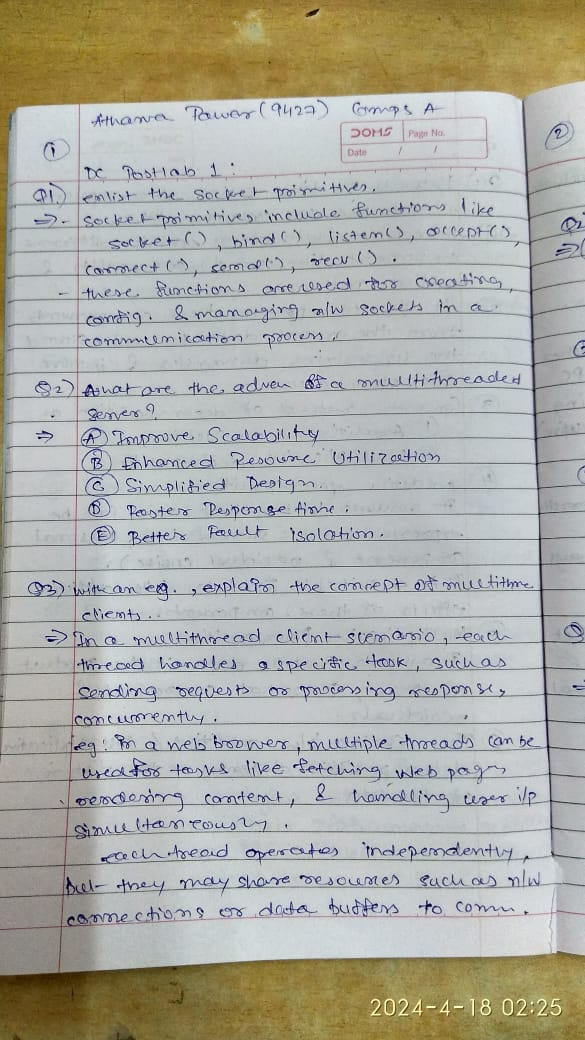 Atharva Pawar (9427) Comps A
DOMS Page No.
Date / /
①
DC Postlab 1 :
Q1.) enlist the socket primitives.
⇒ - socket primitives include functions like
socket (), bind (), listen (), accept (),
connect (), send (), recv ().
- these functions are used for creating,
config. & managing n/w sockets in a
communication process.
Q2) What are the advan of a multithreaded
server?
⇒ Ⓐ Improve Scalability
Ⓑ Enhanced Resource Utilization
Ⓒ Simplified Design.
Ⓓ Faster Response time.
Ⓔ Better Fault isolation.
Q3) with an eg., explain the concept of multithre
clients.
⇒ In a multithread client scenario, each
thread handles a specific task, such as
sending requests or processing response,
concurrently.
eg: In a web broower, multiple threads can be
used for tasks like fetching Web pages
rendering content, & handling user i/p
simultaneously.
each tread operates independently,
but they may share resources such as n/w
connections or data buffers to comm.
②
Q2
⇒
2024-4-18 02:25